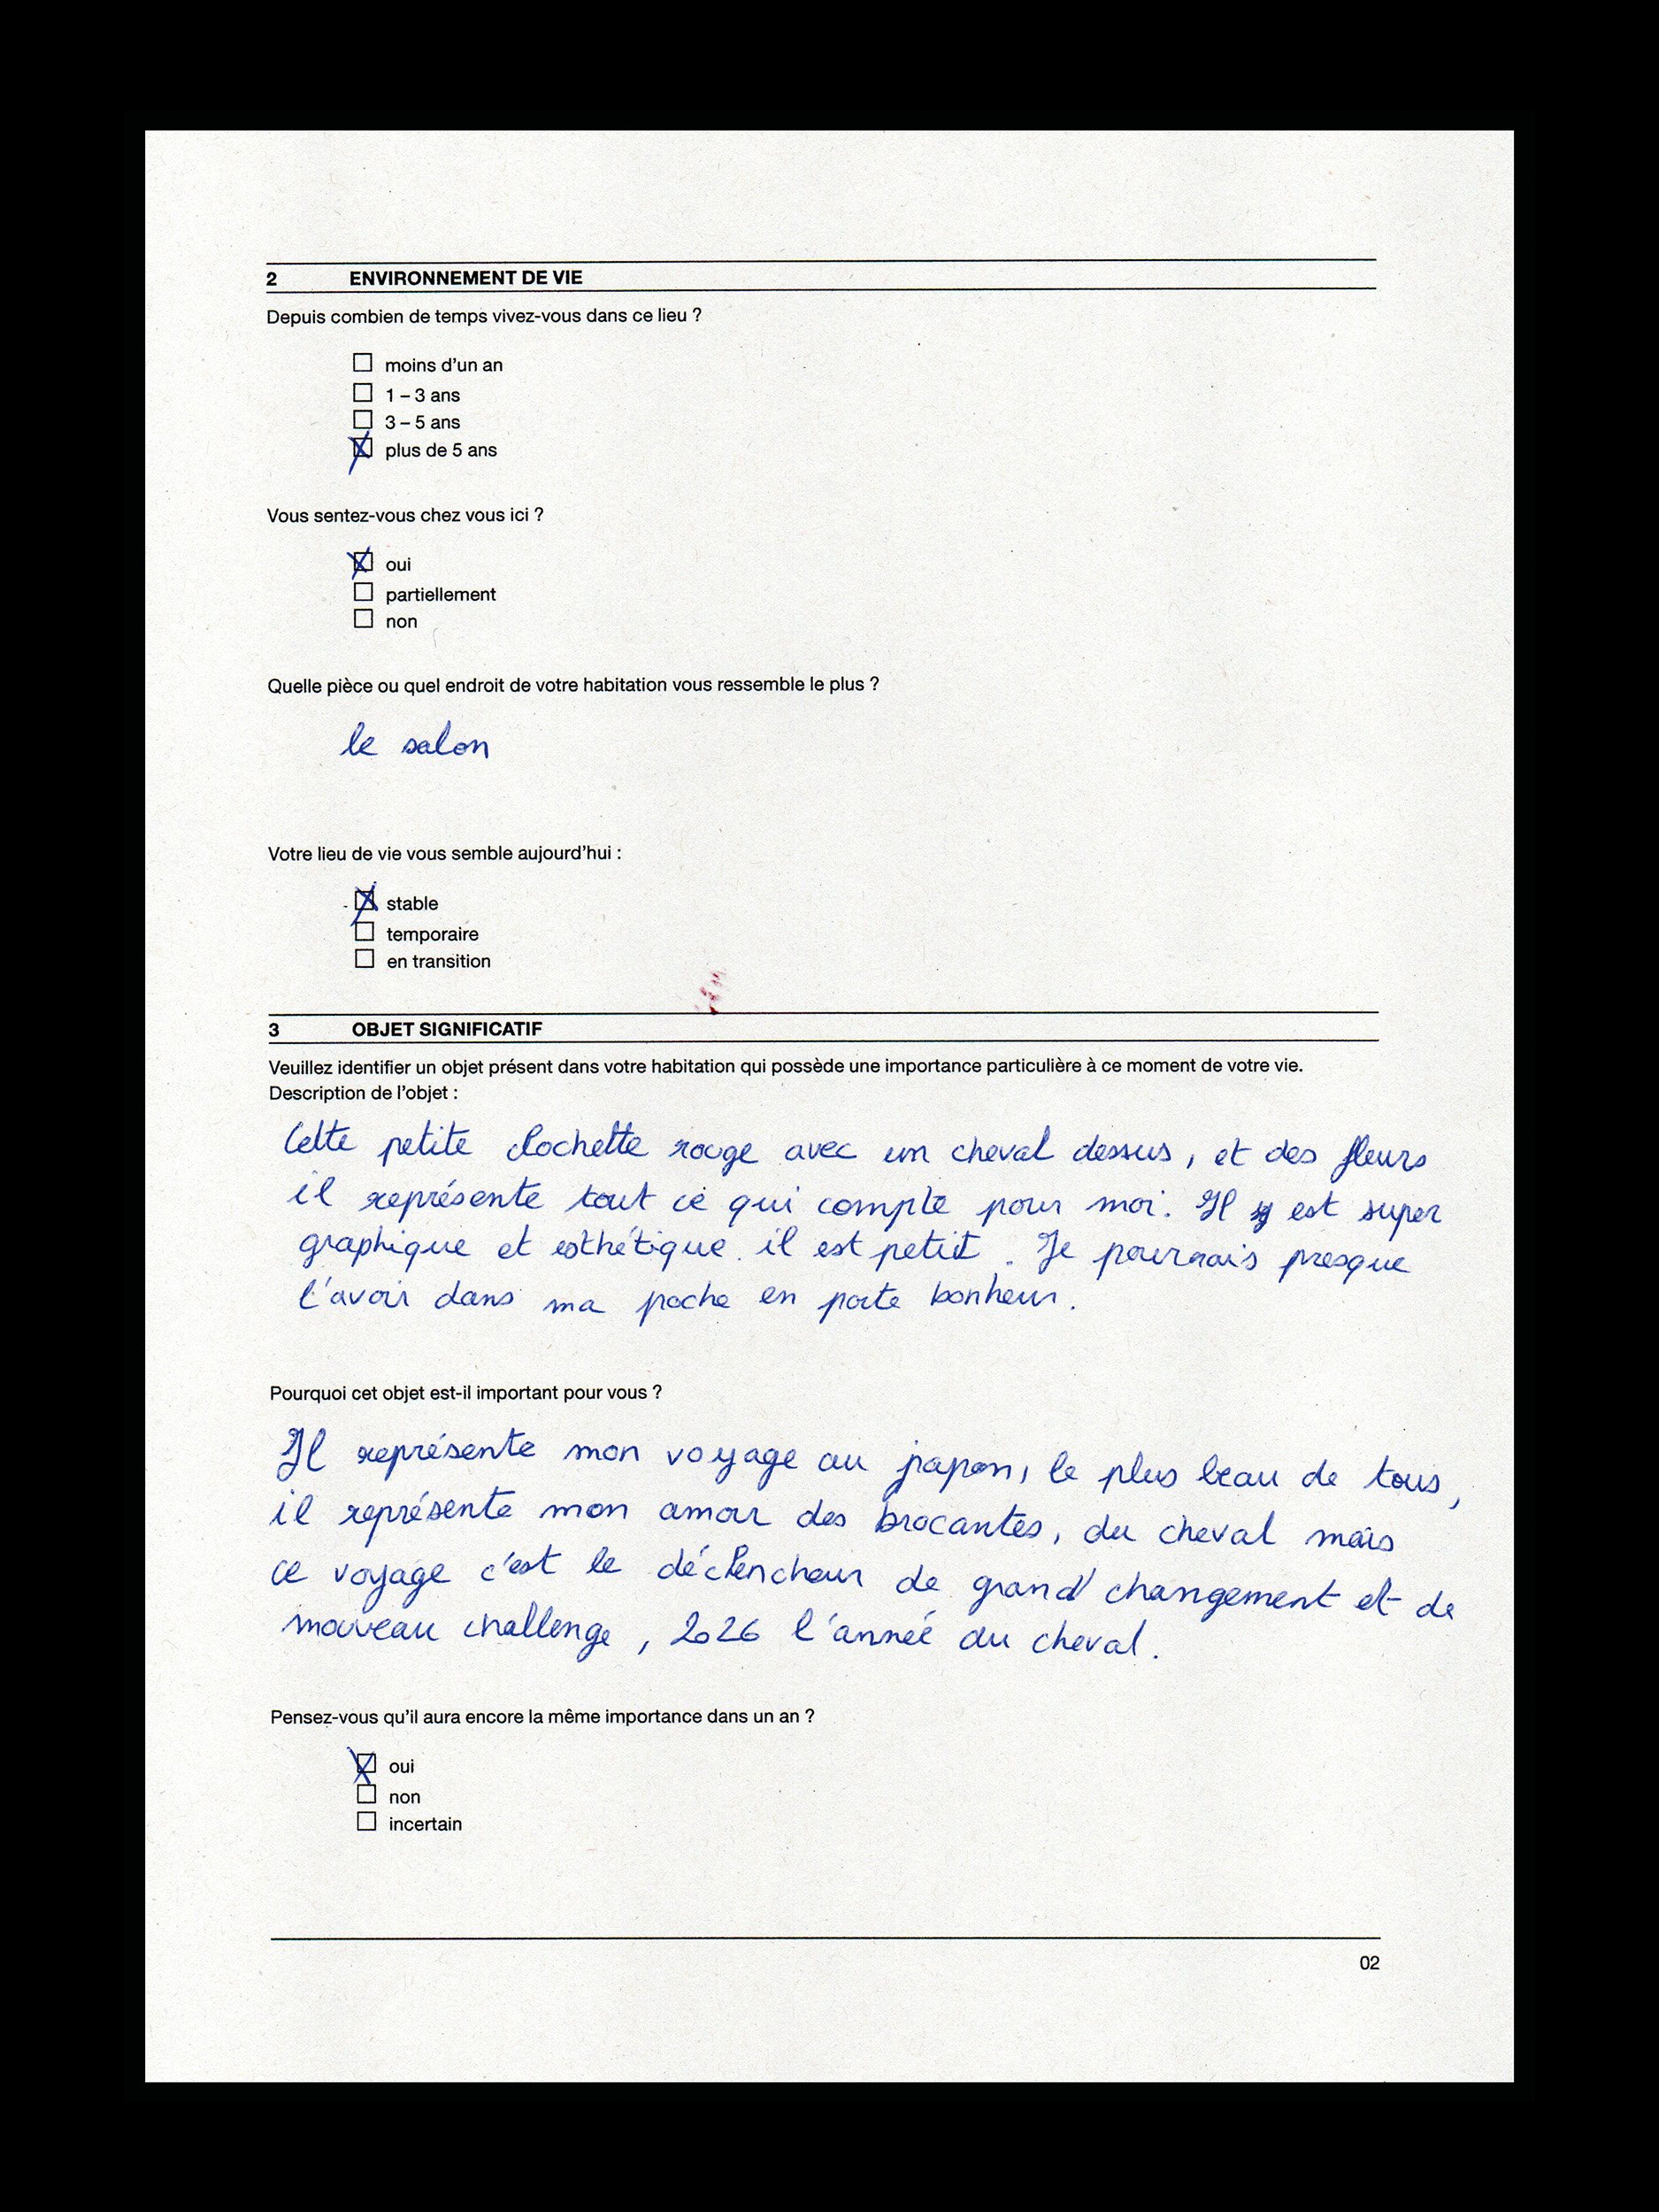 2 ENVIRONNEMENT DE VIE
Depuis combien de temps vivez-vous dans ce lieu ?
☐ moins d'un an
☐ 1 – 3 ans
☐ 3 – 5 ans
☒ plus de 5 ans
Vous sentez-vous chez vous ici ?
☒ oui
☐ partiellement
☐ non
Quelle pièce ou quel endroit de votre habitation vous ressemble le plus ?
le salon
Votre lieu de vie vous semble aujourd'hui :
☒ stable
☐ temporaire
☐ en transition
3 OBJET SIGNIFICATIF
Veuillez identifier un objet présent dans votre habitation qui possède une importance particulière à ce moment de votre vie.
Description de l'objet :
Cette petite clochette rouge avec un cheval dessus, et des fleurs
il représente tout ce qui compte pour moi. Il est super
graphique et esthétique. il est petit. Je pourrais presque
l'avoir dans ma poche en porte bonheur.
Pourquoi cet objet est-il important pour vous ?
Il représente mon voyage au japon, le plus beau de tous,
il représente mon amour des brocantes, du cheval mais
ce voyage c'est le déclencheur de grand changement et de
nouveau challenge, 2026 l'année du cheval.
Pensez-vous qu'il aura encore la même importance dans un an ?
☒ oui
☐ non
☐ incertain
02